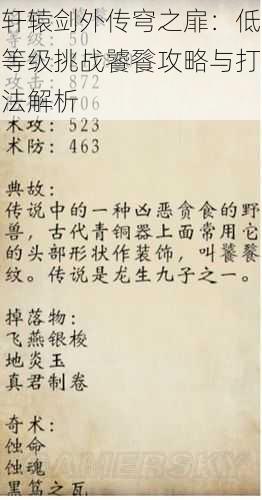 轩辕剑外传穹之扉：低
等级挑战饕餮攻略与打
法解析
等级：50
攻击：872
术攻：523
术防：463
典故：
传说中的一种凶恶贪食的野
兽，古代青铜器上面常用它
的头部形状作装饰，叫饕餮
纹。传说是龙生九子之一。
掉落物：
飞燕银梭
地炎玉
真君制卷
奇术：
蚀命
蚀魂
黑笃之瓦
GAMERSKY